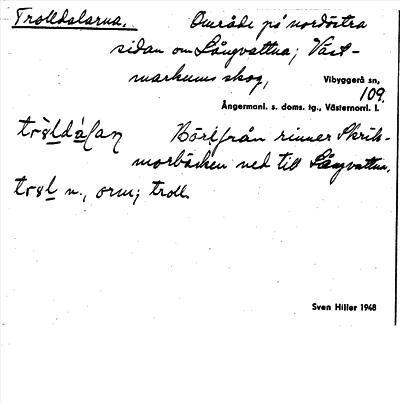 Trolldalarna. Område på nordöstra
sidan om Långvattna; Väst-
markums skog,
Vibyggerå sn,
109.
Ångermanl. s. doms. tg., Västernorrl. l.
Härifrån rinner Skrik-
morbäcken ned till Långvattna.
n., orm; troll.
Sven Hiller 1948